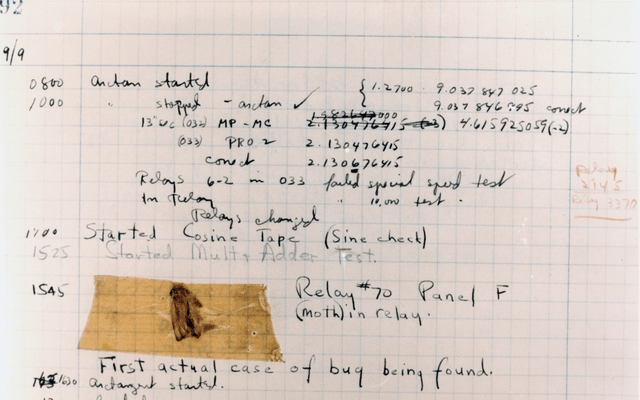 92
9/9
0800 arctan started { 1.2700 9.037 847 025
1000 " stopped - arctan ✓ 9.037 846 995 correct
13" uc (032) MP-MC 1.982647000 2.130476415 (-3) 4.615925059 (-2)
(033) PRO 2 2.130476415
correct 2.130676415
Relays 6-2 in 033 failed special speed test
in Relay " 10,000 test.
Relay 2145
Relay 3370
Relays changed
1700 Started Cosine Tape (Sine check)
1525 Started Mult + Adder Test.
1545 Relay #70 Panel F
(moth) in relay.
First actual case of bug being found.
1630 arctangent started.